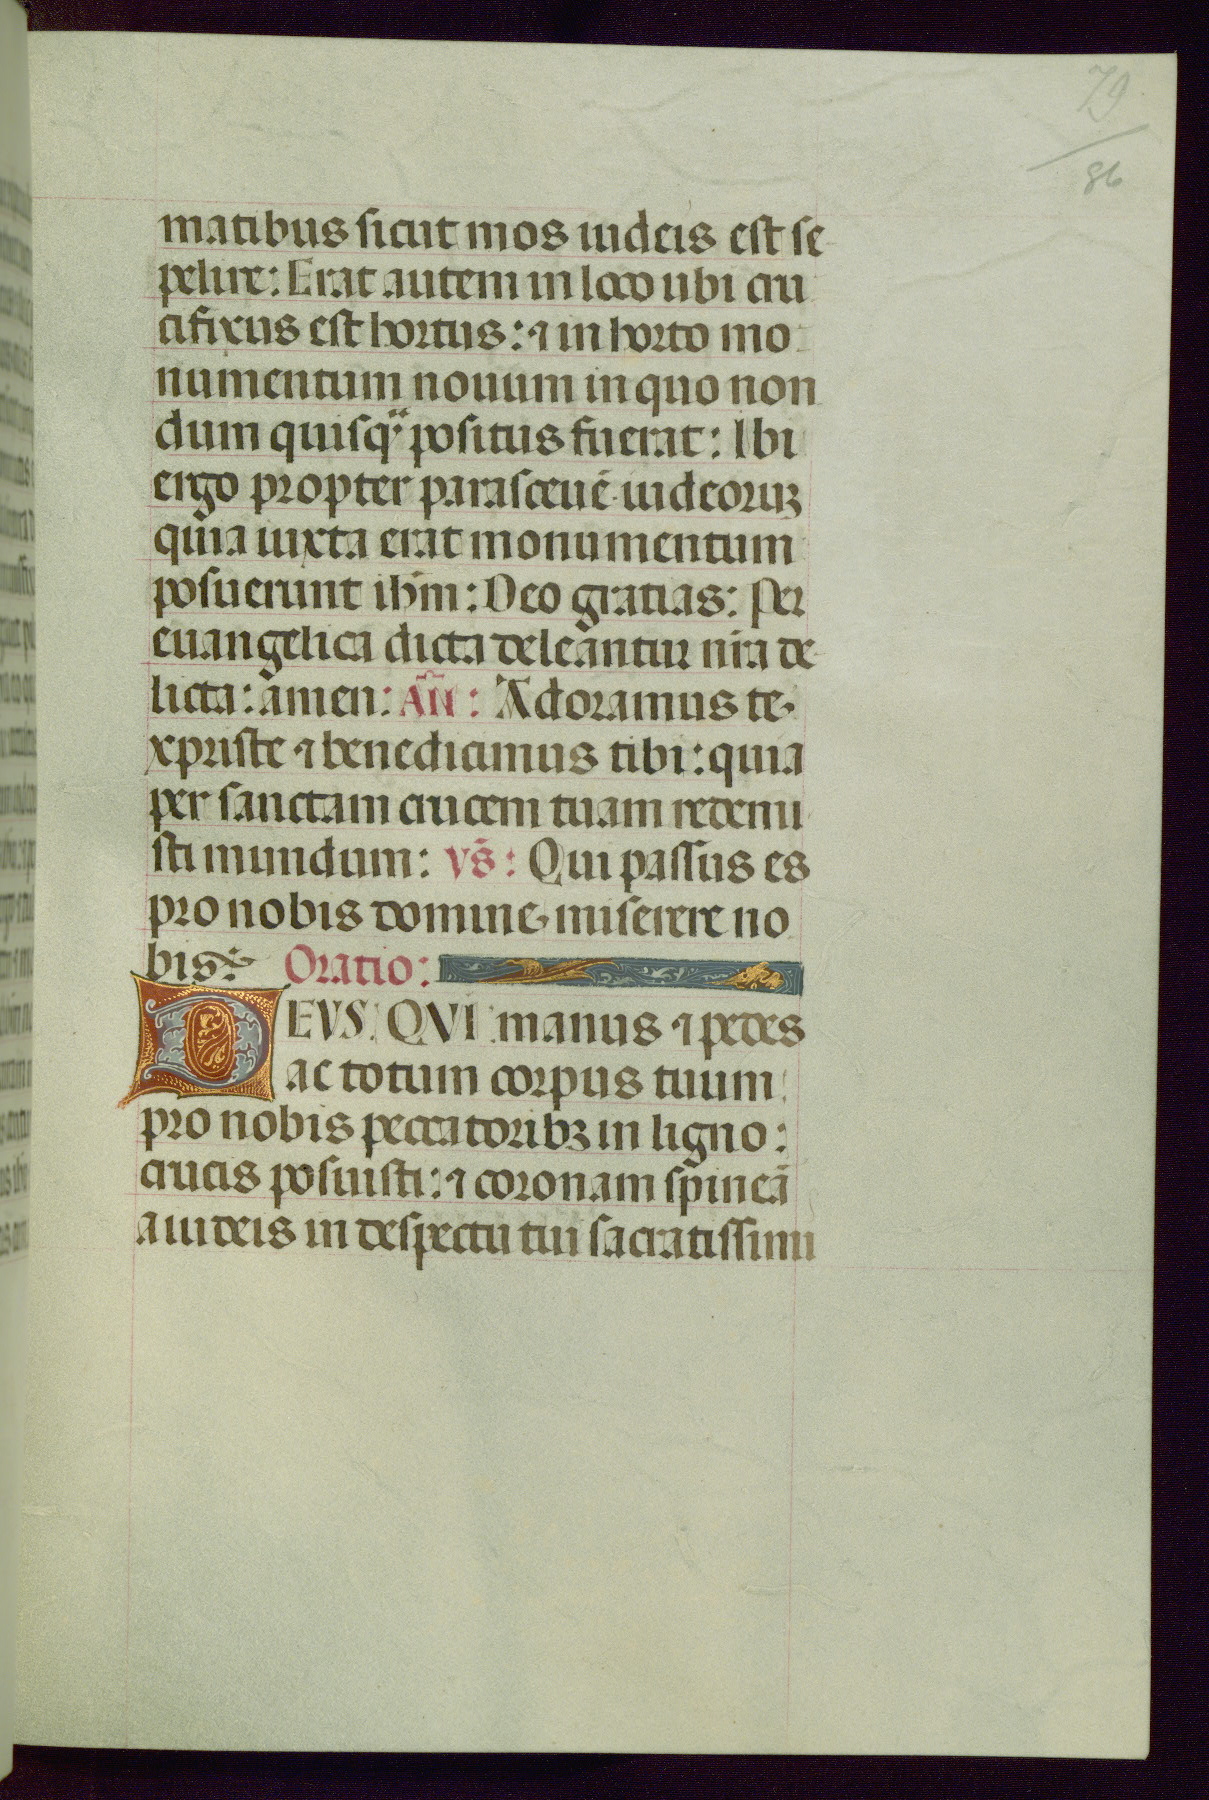 79
86
matibus sicut mos iudeis est se
pelire: Erat autem in loco ubi cru
cifixus est hortus: ⁊ in horto mo
numentum nouum in quo non
dum quisqᷓ positus fuerat: Ibi
ergo propter parasceuē iudeoruꝫ
quia iuxta erat monumentum
posuerunt ihm̄: Deo gratias: Per
euangelica dicta deleantur nr̄a de
licta: amen: Añ: Adoramus te
xpriste ⁊ benedicimus tibi: quia
per sanctam crucem tuam redemi
sti mundum: vs̄: Qui passus es
pro nobis domine miserere no
bis: Oratio:
DEVS QVI manus ⁊ pedes
ac totum corpus tuum
pro nobis peccatoribꝫ in ligno:
crucis posuisti: ⁊ coronam spineā
a iudeis in despectu tui sacratissimi